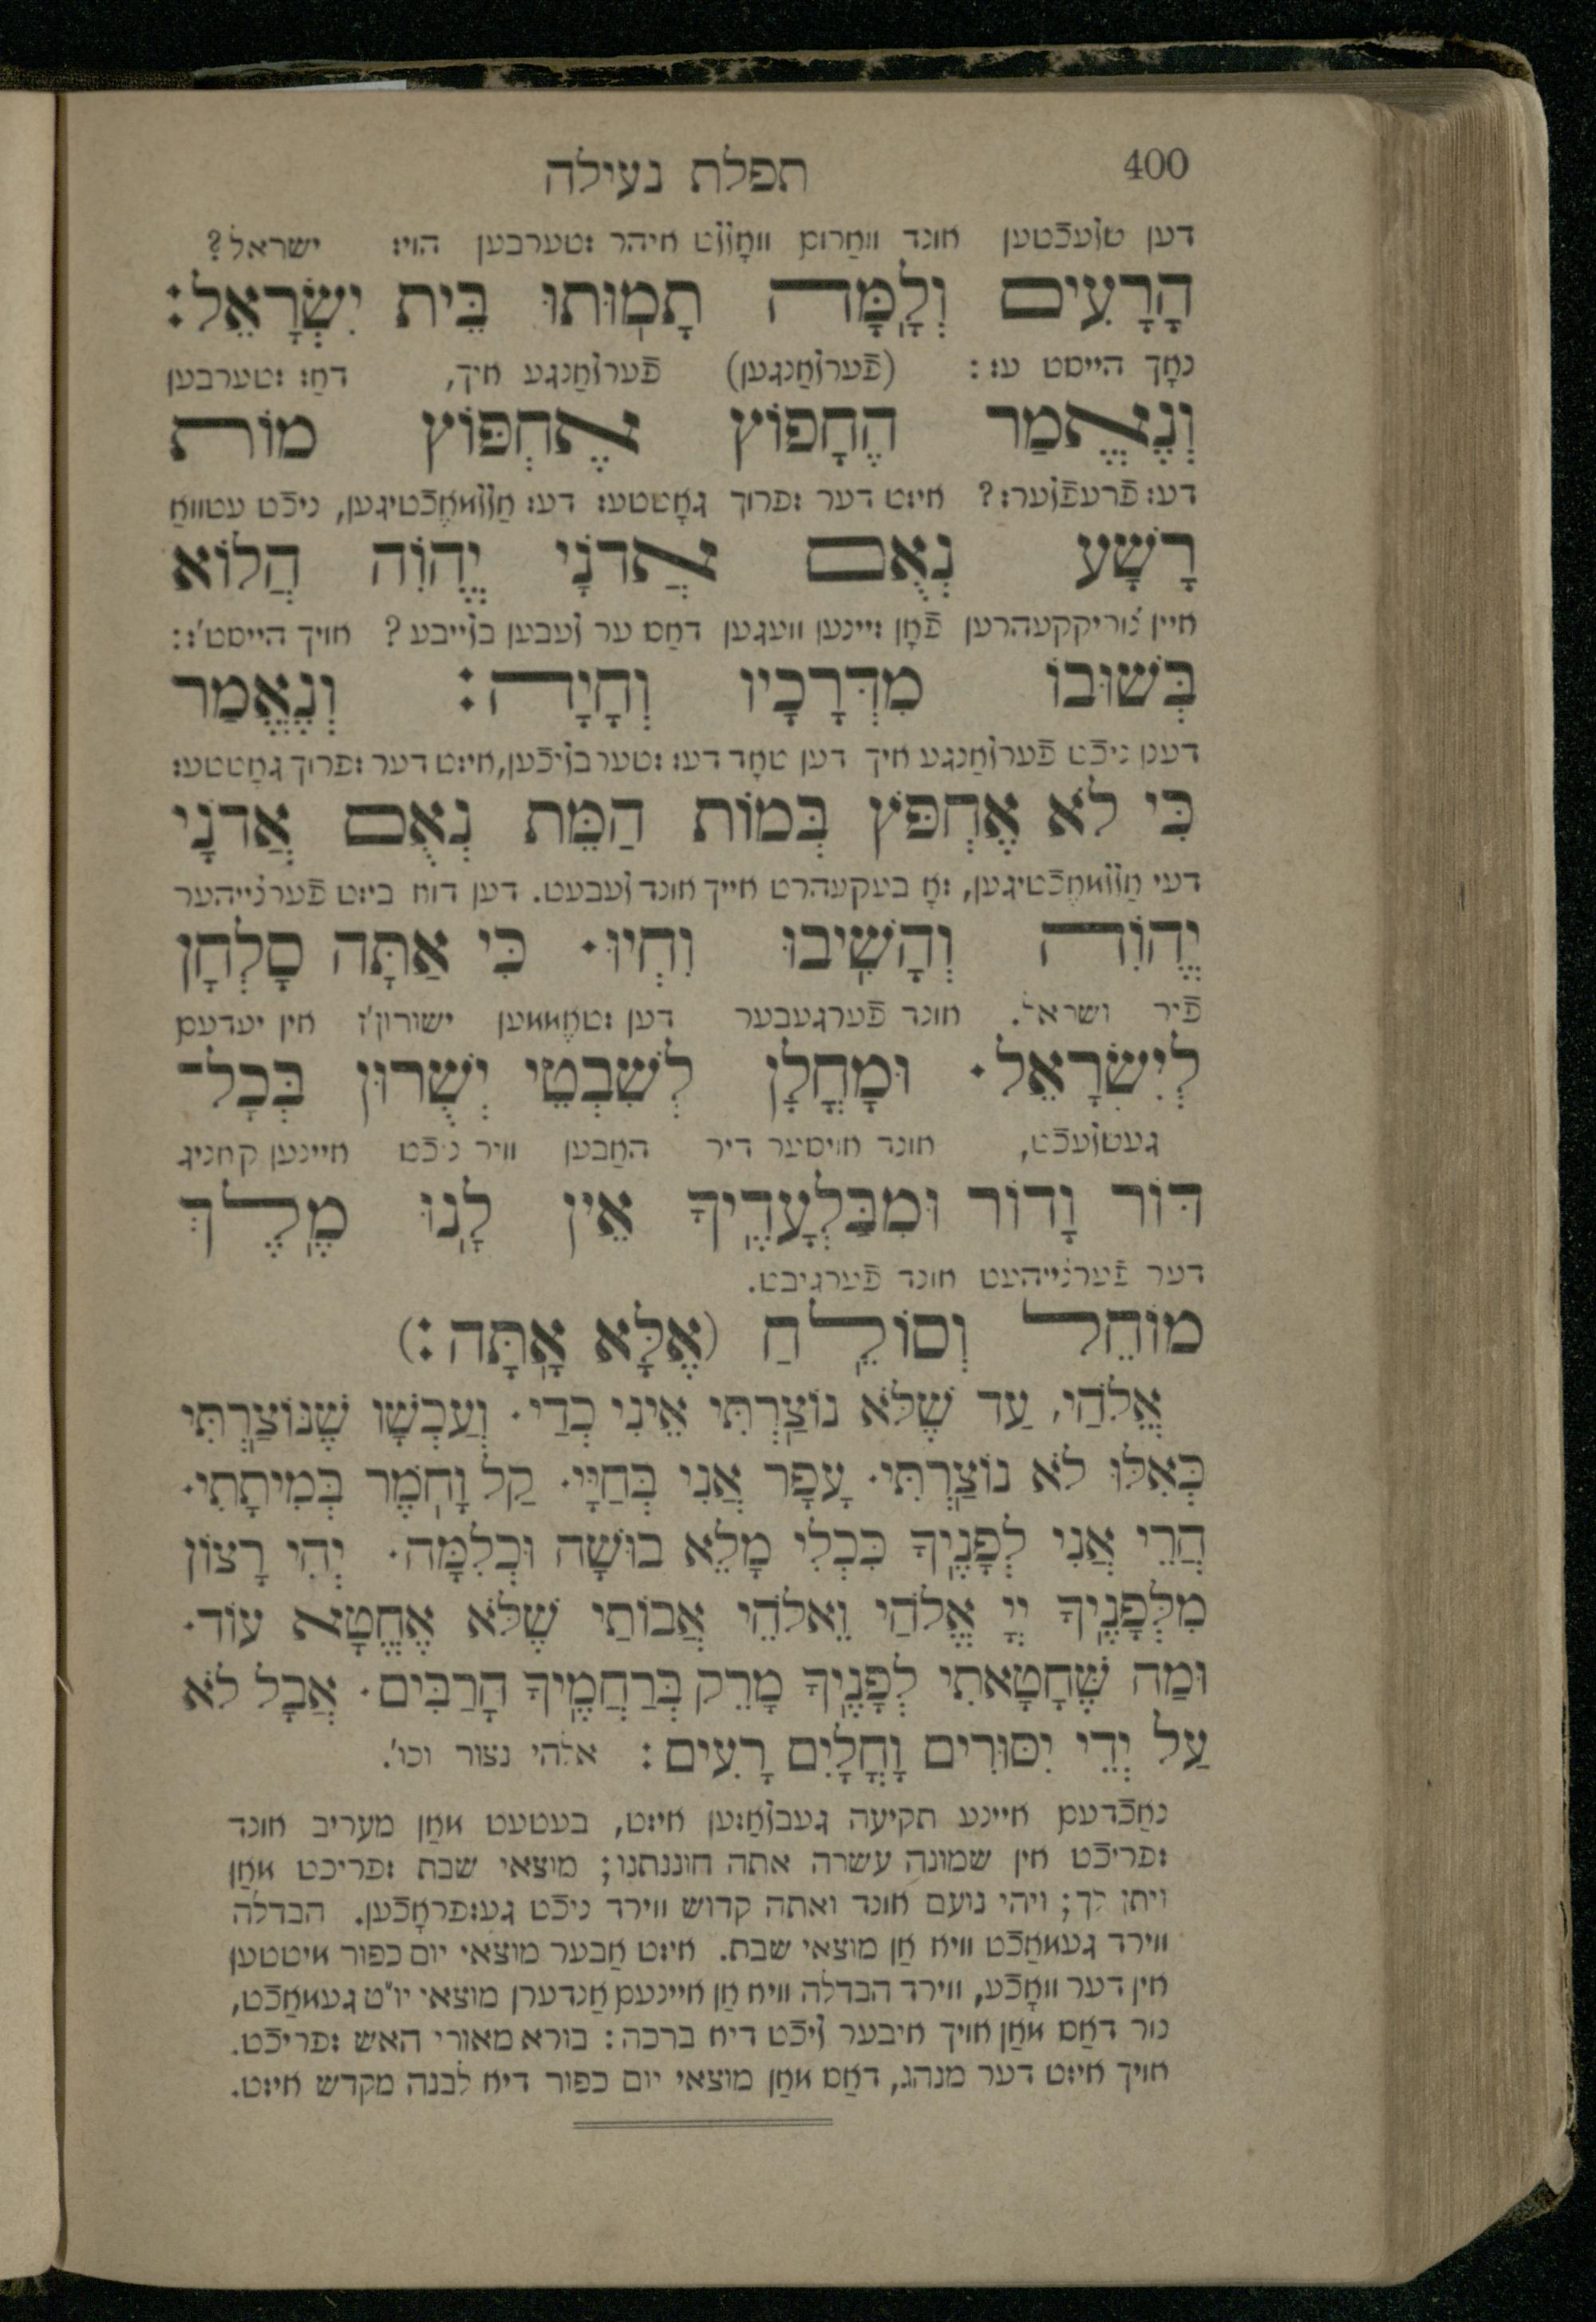 תפלת נעילה 400
דען שלעכֿטען אונד וואַרום וואָללט איהר שטערבען הויז ישראל?
הָרָעִים וְלָמָּה תָמוּתוּ בֵּית יִשְׂרָאֵל:
נאָך הייסט עס: (פֿערלאַנגען) פֿערלאַנגע איך, דאַס שטערבען
וְנֶאֱמַר הֶחָפוֹץ אֶחְפּוֹץ מוֹת
דעס פֿרעפֿלערס? איזט דער שפרוך גאָטטעס דעס אַללמאֶכֿטיגען, ניכֿט עטוואַ
רָשָׁע נְאֻם אֲדֹנָי יֱהֹוִה הֲלוֹא
איין צוריקקעהרען פֿאָן זיינען וועגען דאַס ער לעבען בלייבע? אויך הייסט'ס:
בְּשׁוּבוֹ מִדְּרָכָיו וְחָיָה: וְנֶאֱמַר
דענן ניכֿט פֿערלאַנגע איך דען טאָד דעס שטערבליכֿען, איזט דער שפרוך גאָטטעס
כִּי לֹא אֶחְפֹּץ בְּמוֹת הַמֵּת נְאֻם אֲדֹנָי
דעס אַללמאֶכֿטיגען, זאָ בעקעהרט אייך אונד לעבעט. דען דוא ביזט פֿערצייהער
יֱהֹוִה וְהָשִׁיבוּ וִחְיוּ· כִּי אַתָּה סָלְחָן
פֿיר ישראל. אונד פֿערגעבער דען שטאֶממען ישורון'ז אין יעדעם
לְיִשְׂרָאֵל· וּמָחֳלָן לְשִׁבְטֵי יְשֻׁרוּן בְּכָל־
געשלעכֿט, אונד אויסער דיר האַבען וויר ניכֿט איינען קאניג
דּוֹר וָדוֹר וּמִבַּלְעָדֶיךָ אֵין לָנוּ מֶלֶךְ
דער פֿערצייהעט אונד פֿערגיבט.
מוֹחֵל וְסוֹלֵחַ (אֶלָּא אָתָּה:)
אֱלֹהַי, עַד שֶׁלֹּא נוֹצַרְתִּי אֵינִי כְדַי· וְעַכְשָׁו שֶׁנּוֹצַרְתִּי
כְּאִלּוּ לֹא נוֹצַרְתִּי· עָפָר אֲנִי בְּחַיָּי· קַל וָחֹמֶר בְּמִיתָתִי·
הֲרֵי אֲנִי לְפָנֶיךָ כִּכְלִי מָלֵא בוּשָׁה וּכְלִמָּה· יְהִי רָצוֹן
מִלְּפָנֶיךָ יְיָ אֱלֹהַי וֵאלֹהֵי אֲבוֹתַי שֶׁלֹּא אֶחֱטָא עוֹד·
וּמַה שֶּׁחָטָאתִי לְפָנֶיךָ מָרֵק בְּרַחֲמֶיךָ הָרַבִּים· אֲבָל לֹא
עַל יְדֵי יִסּוּרִים וָחֳלָיִם רָעִים: אלהי נצור וכו'.
נאַכֿדעם איינע תקיעה געבלאַזען איזט, בעטעט מאַן מעריב אונד
שפריכֿט אין שמונה עשרה אתה חוננתנו; מוצאי שבת שפריכט מאַן
ויתן לך; ויהי נועם אונד ואתה קדוש ווירד ניכֿט געשפראָכֿען. הבדלה
ווירד געמאַכֿט וויא אַן מוצאי שבת. איזט אַבער מוצאי יום כפור מיטטען
אין דער וואָכֿע, ווירד הבדלה וויא אַן איינעם אַנדערן מוצאי יו"ט געמאַכֿט,
נור דאַס מאַן אויך איבער ליכֿט דיא ברכה: בורא מאורי האש שפריכֿט.
אויך איזט דער מנהג, דאַס מאַן מוצאי יום כפור דיא לבנה מקדש איזט.